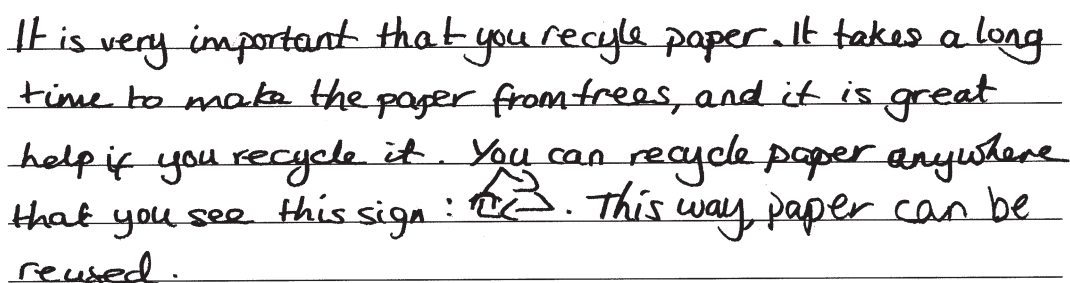 It is very important that you recyle paper. It takes a long
time to make the paper from trees, and it is great
help if you recycle it. You can recycle paper anywhere
that you see this sign : ♲. This way, paper can be
reused.